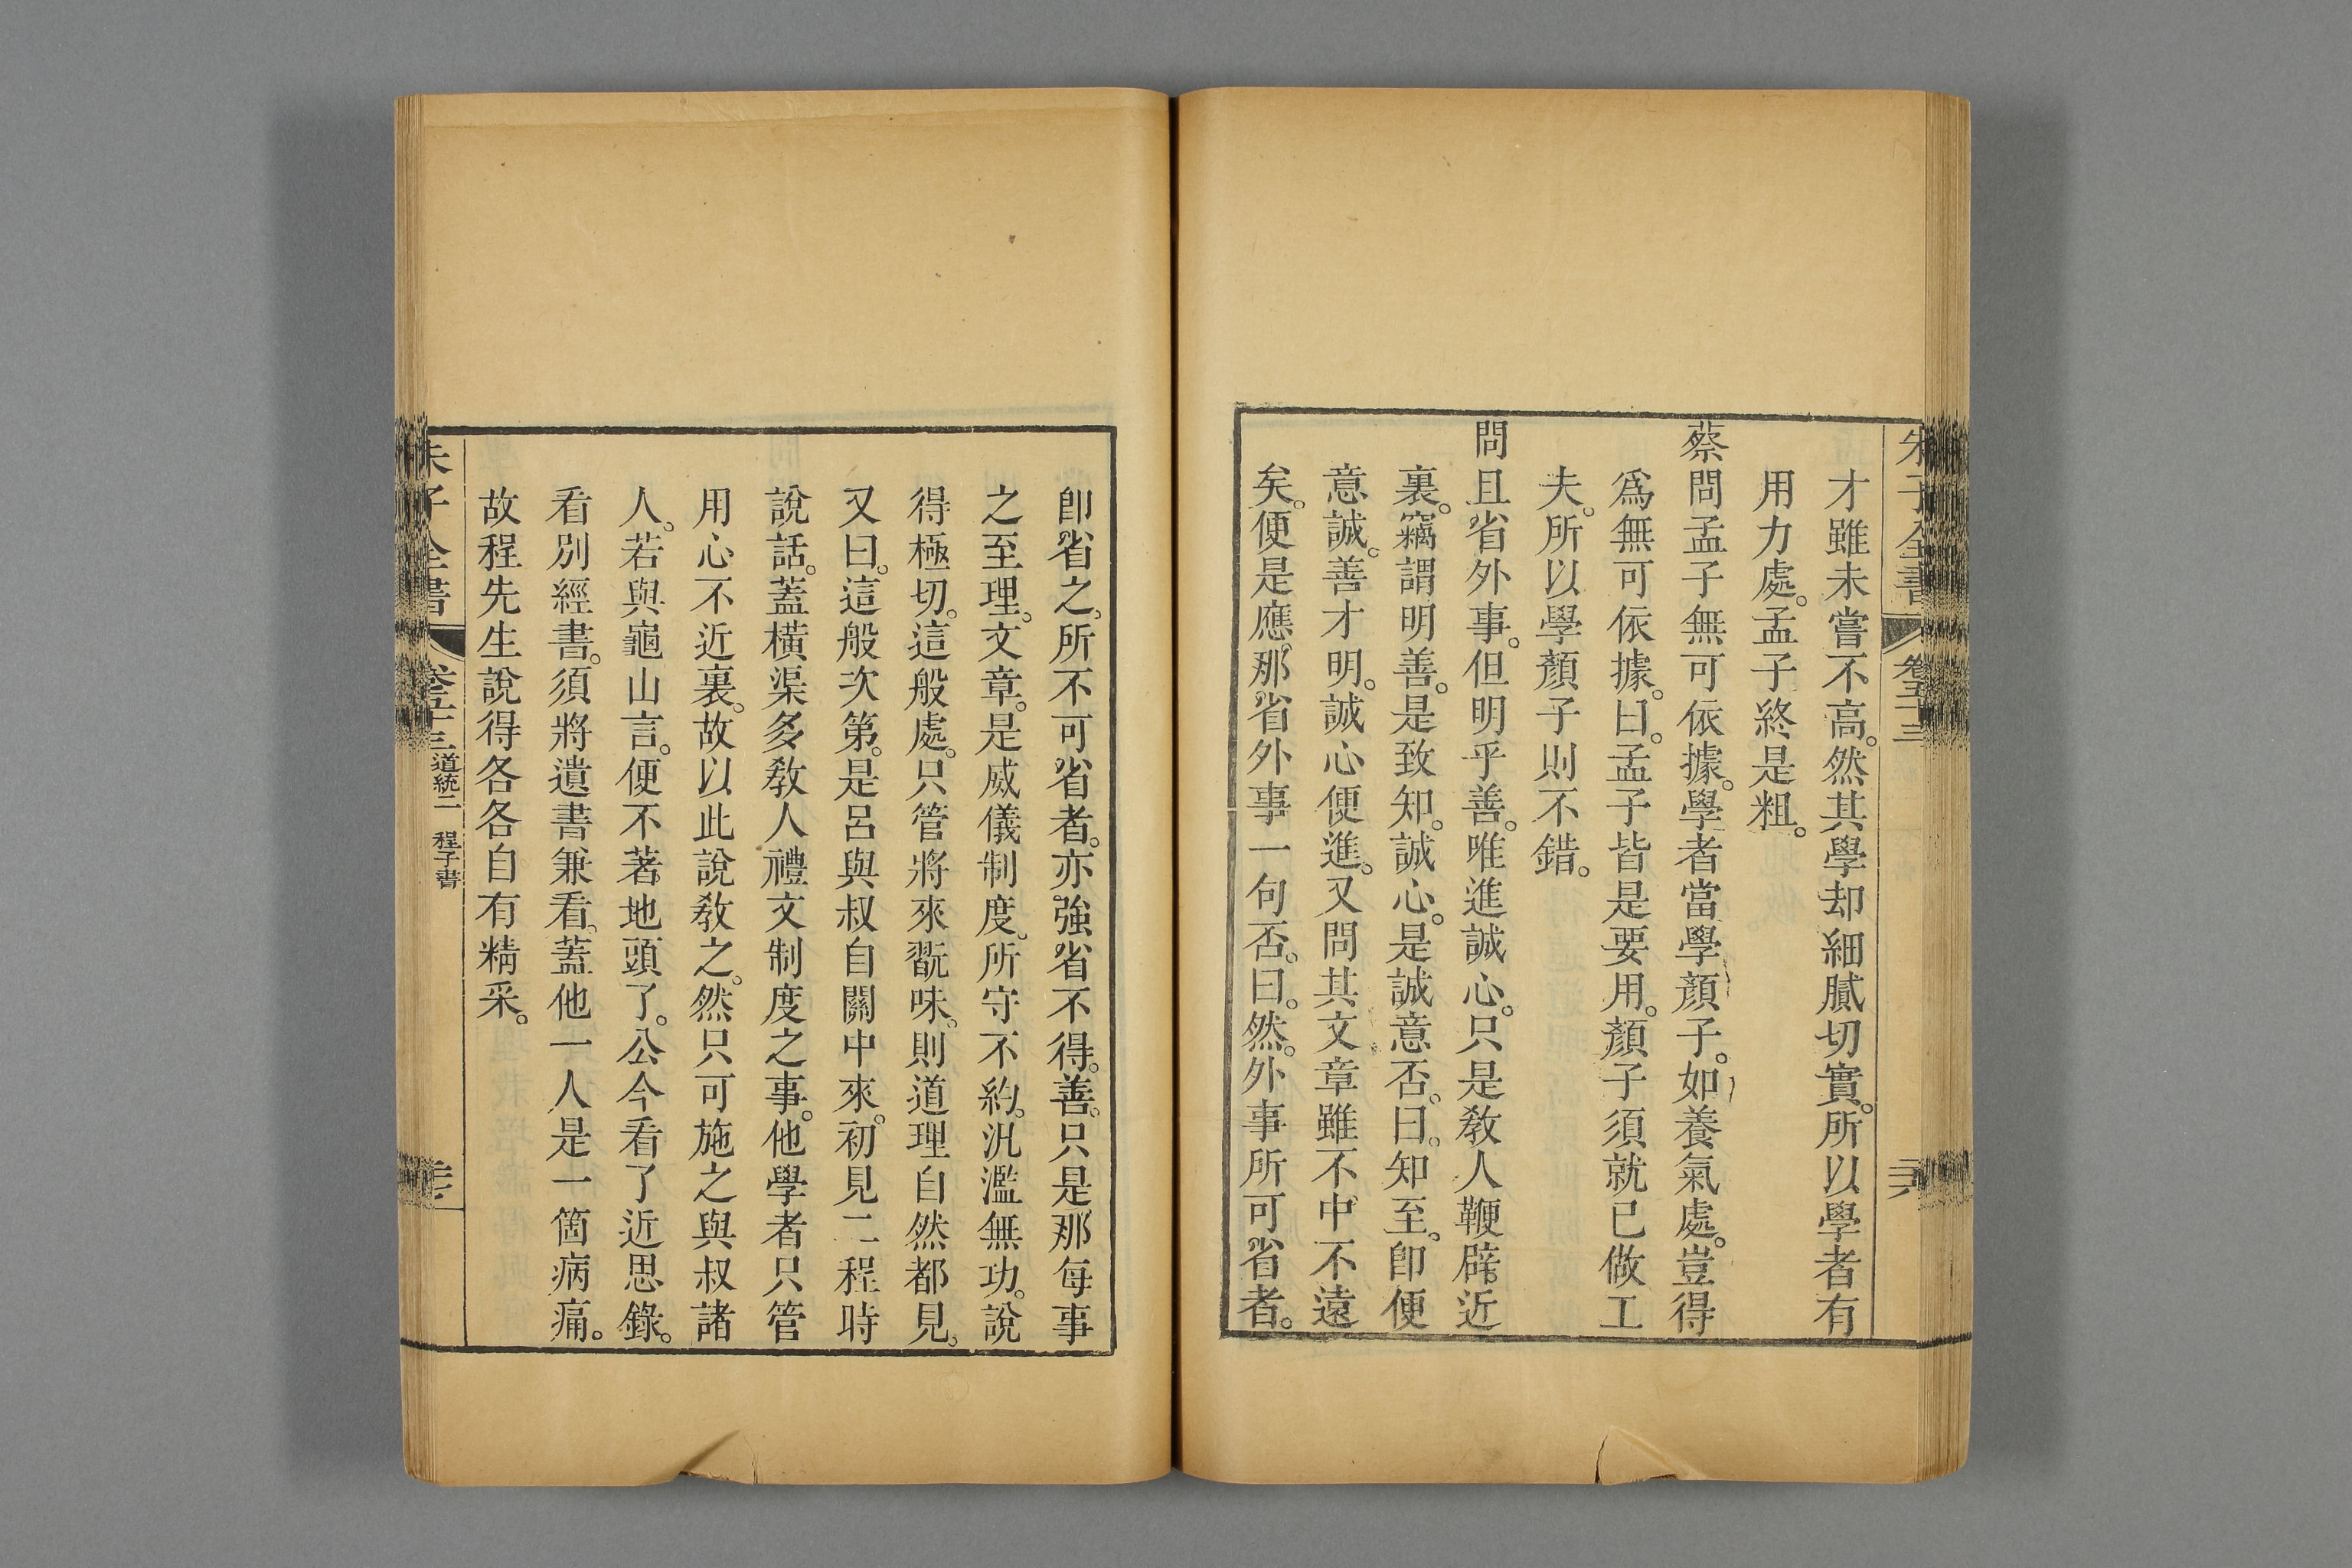 朱子全書 卷五十三
才雖未嘗不高。然其學却細膩切實。所以學者有
用力處。孟子終是粗。
蔡問孟子無可依據。學者當學顏子。如養氣處。豈得
爲無可依據。曰。孟子皆是要用。顏子須就已做工
夫。所以學顏子則不錯。
問且省外事。但明乎善。唯進誠心。只是敎人鞭辟近
裏。竊謂明善。是致知。誠心。是誠意否。曰。知至。卽便
意誠。善才明。誠心便進。又問其文章雖不中不遠
矣。便是應那省外事一句否。曰。然。外事所可省者。
卽省之。所不可省者。亦強省不得。善。只是那每事
之至理。文章。是威儀制度。所守不約。汎濫無功。說
得極切。這般處。只管將來翫味。則道理自然都見。
又曰。這般次第。是呂與叔自關中來。初見二程時
說話。蓋橫渠多敎人禮文制度之事。他學者只管
用心不近裏。故以此說敎之。然只可施之與叔諸
人。若與龜山言。便不著地頭了。公今看了近思錄。
看別經書。須將遺書兼看。蓋他一人是一箇病痛。
故程先生說得各各自有精采。
朱子全書 卷五十三 道統二 程子書